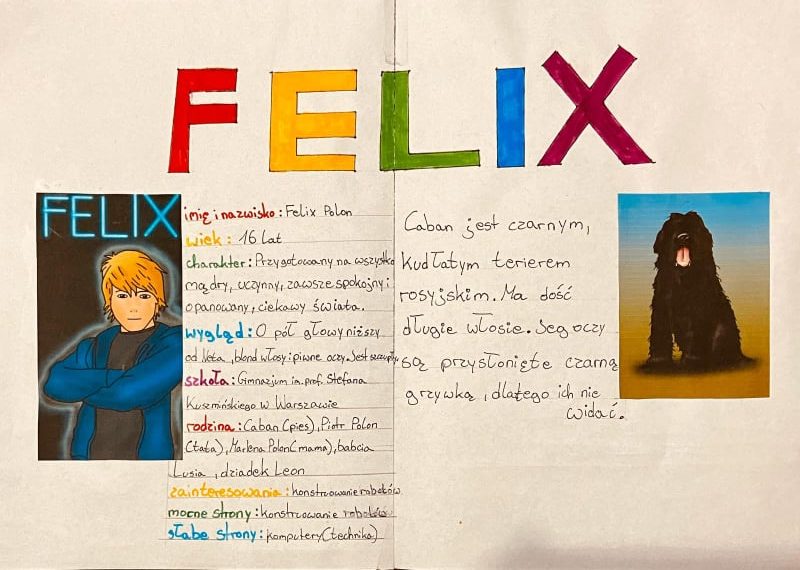 FELIX
FELIX
imię i nazwisko: Felix Polon
wiek: 16 lat
charakter: Przygotowany na wszystko
mądry, uczynny, zawsze spokojny i
opanowany, ciekawy świata.
wygląd: O pół głowy niższy
od Neta, blond włosy i piwne oczy. Jest szczupły
szkoła: Gimnazjum im. prof. Stefana
Kuszmińskiego w Warszawie
rodzina: Caban (pies), Piotr Polon
(tata), Marlena Polon (mama), babcia
Lusia, dziadek Leon
zainteresowania: konstruowanie robotów
mocne strony: konstruowanie robotów
słabe strony: komputery (technika)
Caban jest czarnym,
kudłatym terierem
rosyjskim. Ma dość
długie włosie. Jego oczy
są przysłonięte czarną
grzywką, dlatego ich nie
widać.